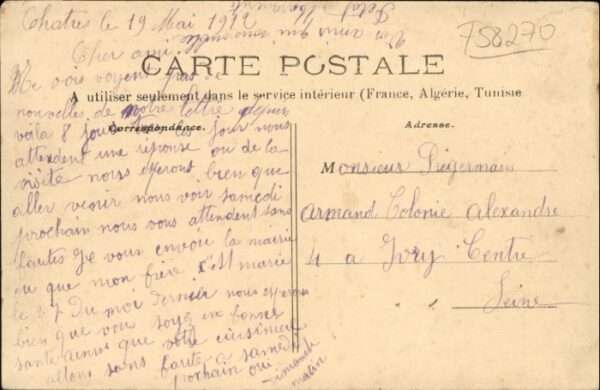 Chatres le 19 Mai 1912
758270
Cher ami
CARTE POSTALE
Ne vois voyent pas de
A utiliser seulement dans le service intérieur (France, Algérie, Tunisie
nouvelles de notre lettre depuis
voila 8 jours jour nous
Correspondance.
Adresse.
attendent une réponse ou de la
visite nous esperont bien que
aller venir nous voir samedi
prochain nous vous attendent sans
fautes je vous envoie la mairie
ou que mon frère c'est marié
le 27 Du moi dernier nous esperon
bien que vous soyez en bonne
santé ainsi que votre cuisinière
allons sans faute a samedi
prochain ou
Dimanche
matin
Monsieur Piégermain
Armand Colonie Alexandre
4 a Ivry Centre
Seine